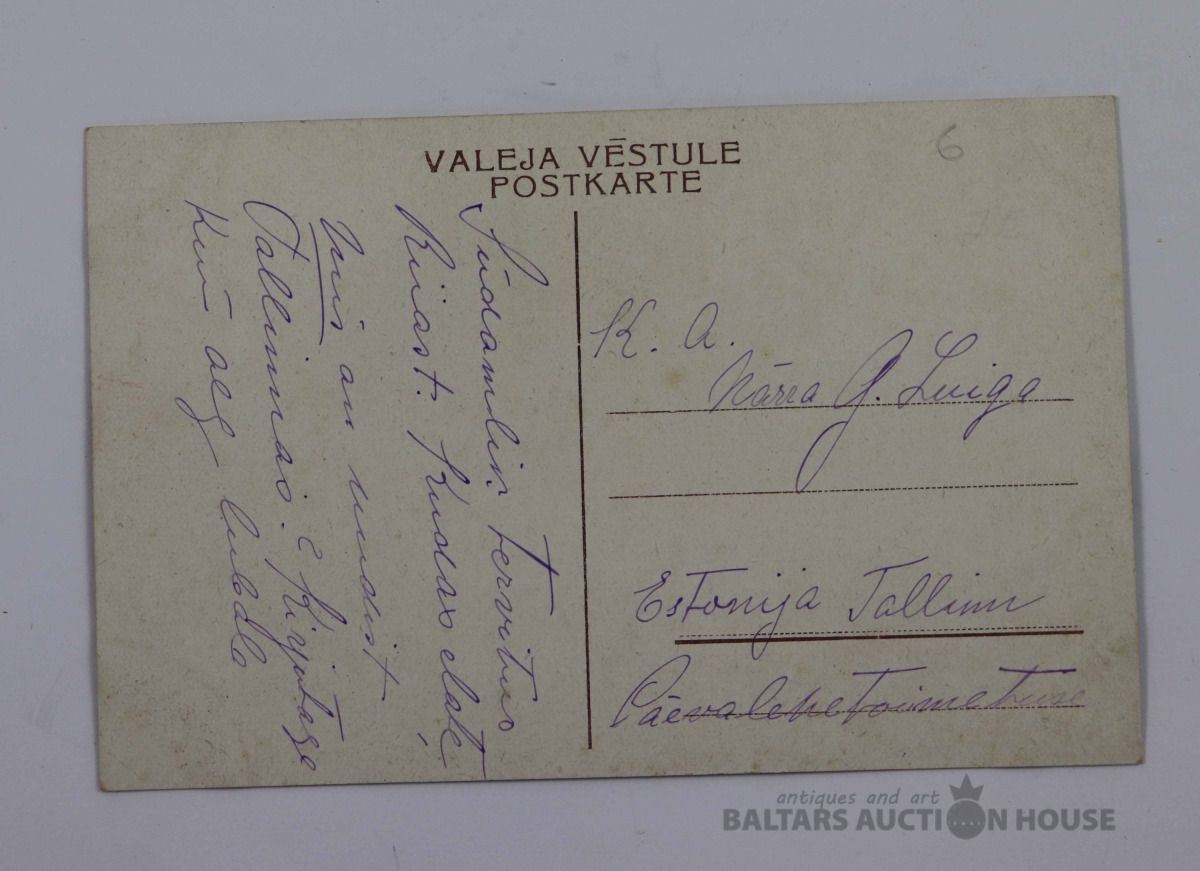 VALEJA VĒSTULE
POSTKARTE
6
Südamlik tervitus
Riiast. Kuidas elate,
mis on uudist
Tallinnas. Kirjutage
kui aeg lubab
K. A.
Härra G. Luiga
Estonija Tallinn
Päevalehe Toimetuse
antiques and art
BALTARS AUCTION HOUSE